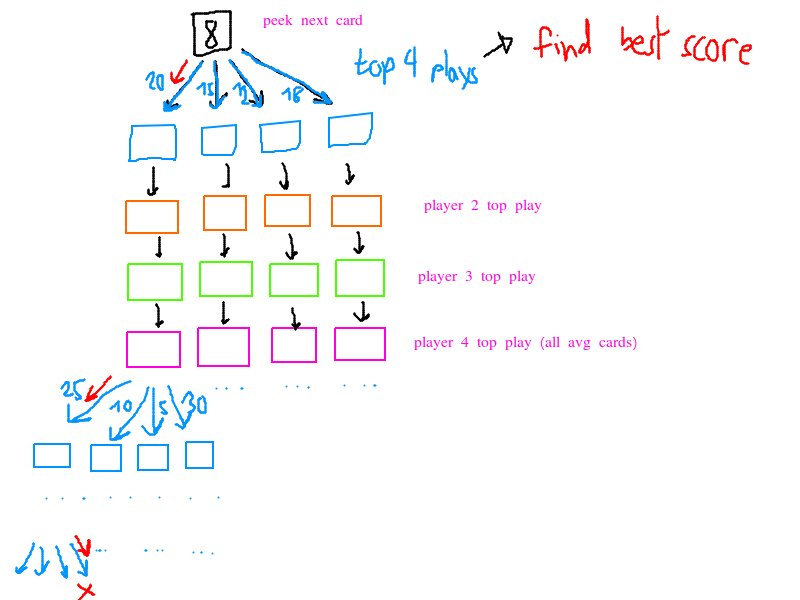 8
peek next card
top 4 plays
find best score
20 15 12 18
player 2 top play
player 3 top play
player 4 top play (all avg cards)
25 10 5 30
x